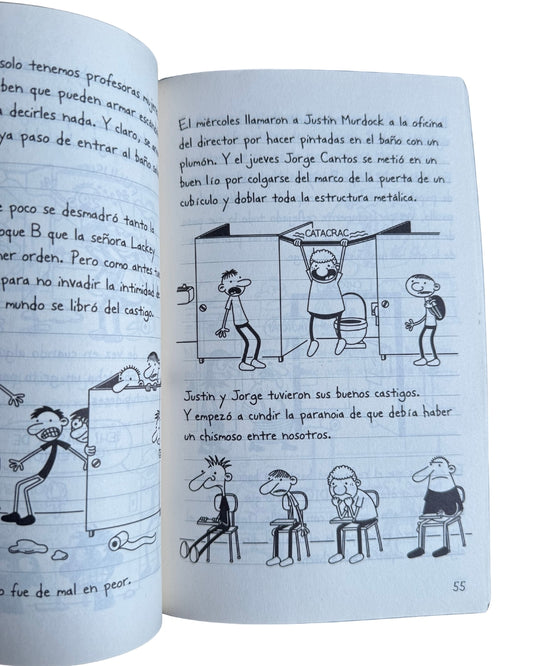 solo tenemos profesoras
ben que pueden armar
decirles nada. Y claro, se
ya paso de entrar al baño
poco se desmadró tanto la
oque B que la señora Lackey
ner orden. Pero como antes
para no invadir la intimidad de
mundo se libró del castigo.
o fue de mal en peor.
El miércoles llamaron a Justin Murdock a la oficina
del director por hacer pintadas en el baño con un
plumón. Y el jueves Jorge Cantos se metió en un
buen lío por colgarse del marco de la puerta de un
cubículo y doblar toda la estructura metálica.
CATACRAC
Justin y Jorge tuvieron sus buenos castigos.
Y empezó a cundir la paranoia de que debía haber
un chismoso entre nosotros.
55